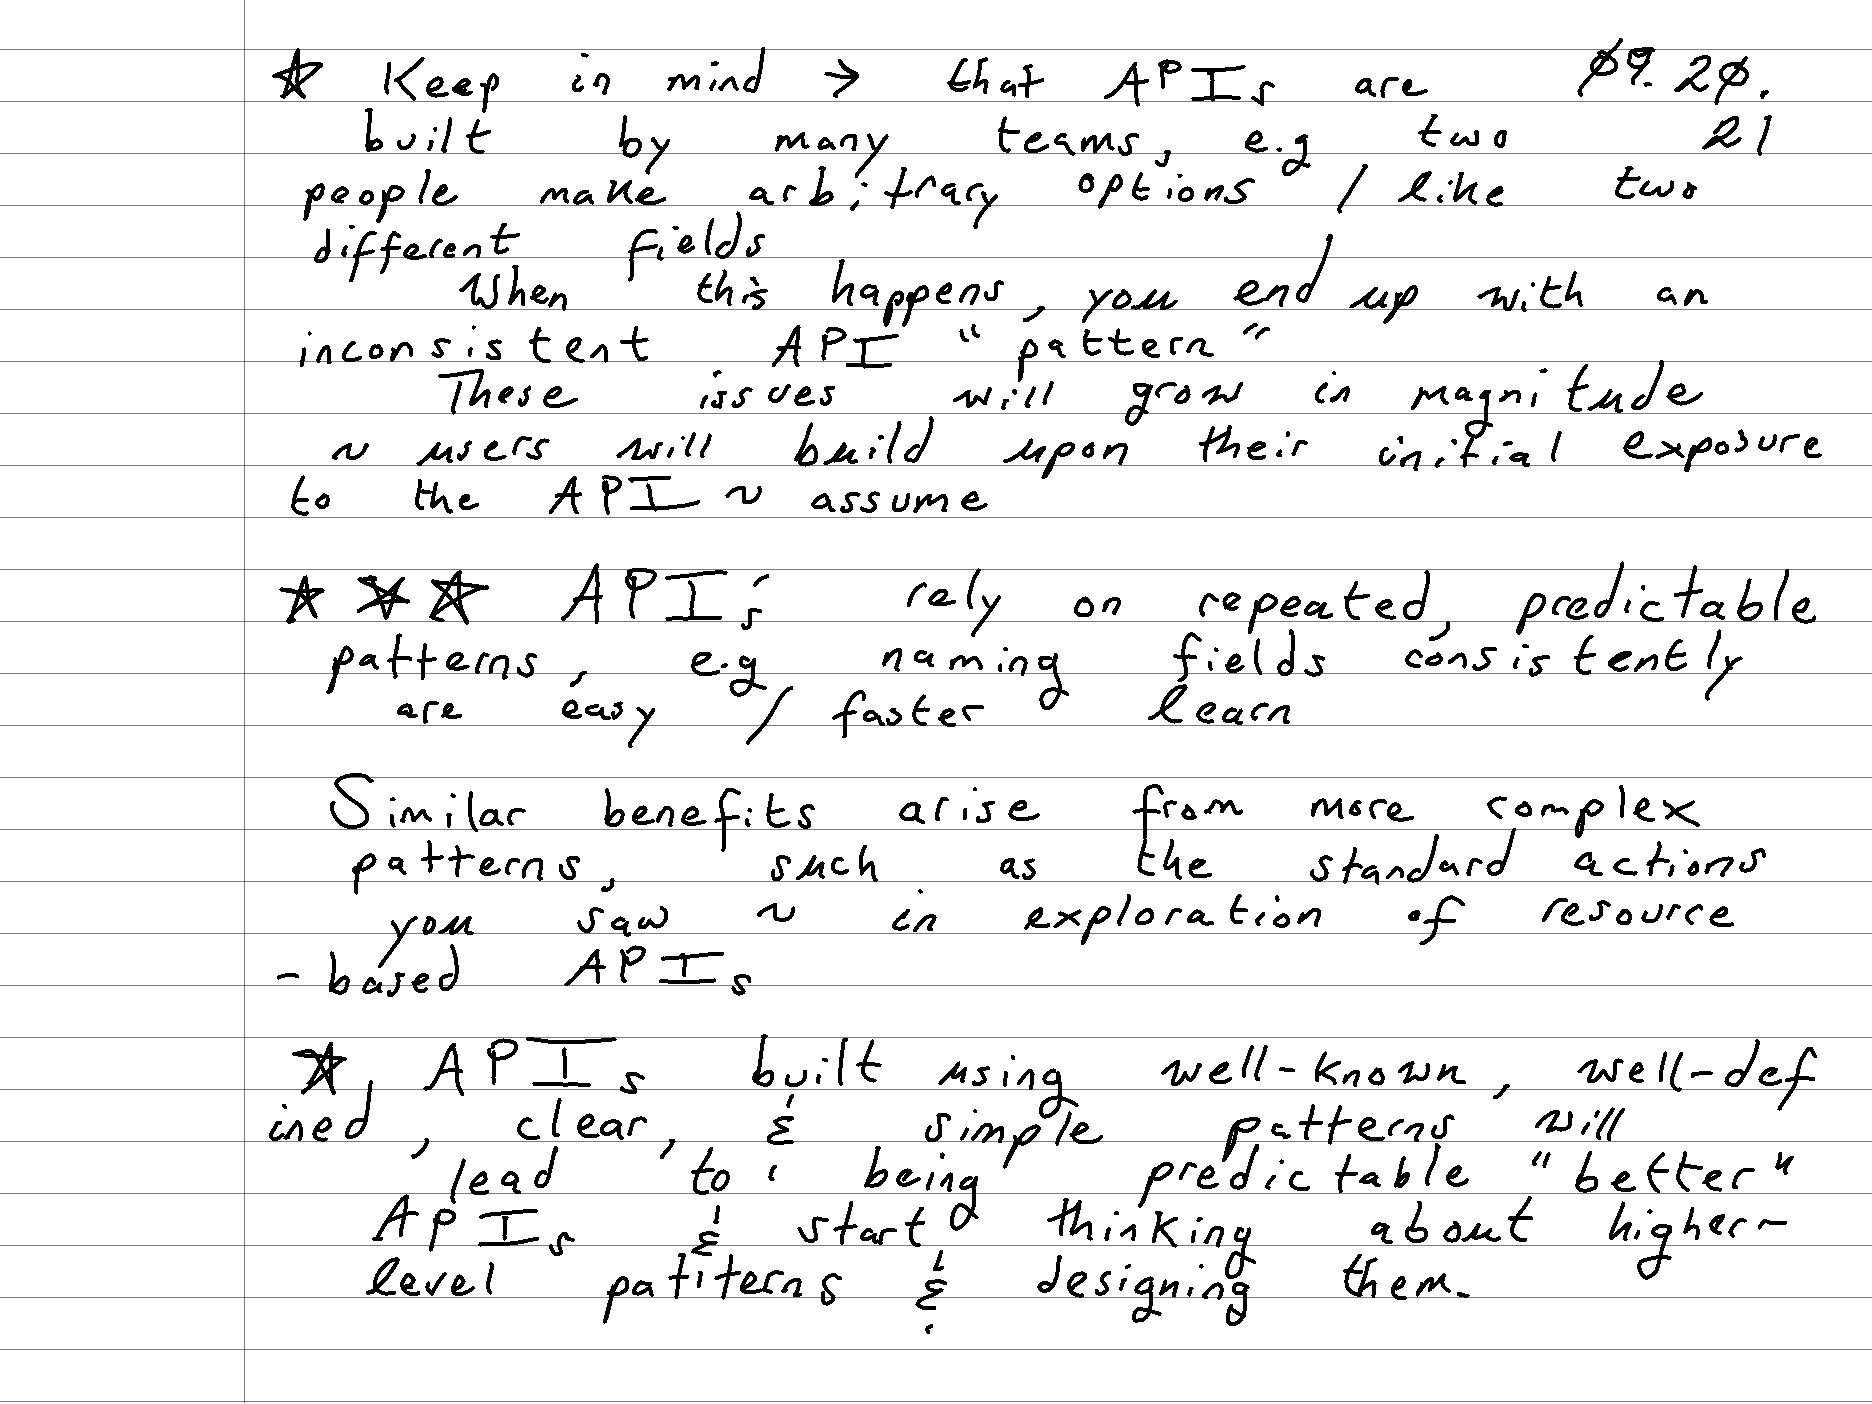 ☆ Keep in mind → that APIs are 09.20.
built by many teams, e.g two 21
people make arbitrary options / like two
different fields
When this happens, you end up with an
inconsistent API "pattern"
These issues will grow in magnitude
~ users will build upon their initial exposure
to the API ~ assume
☆☆☆ API's rely on repeated, predictable
patterns, e.g naming fields consistently
are easy / faster learn
Similar benefits arise from more complex
patterns, such as the standard actions
you saw ~ in exploration of resource
- based APIs
☆, APIs built using well-known, well-def
ined, clear, & simple patterns will
lead to being predictable "better"
APIs & start thinking about higher-
level patiterns & designing them.